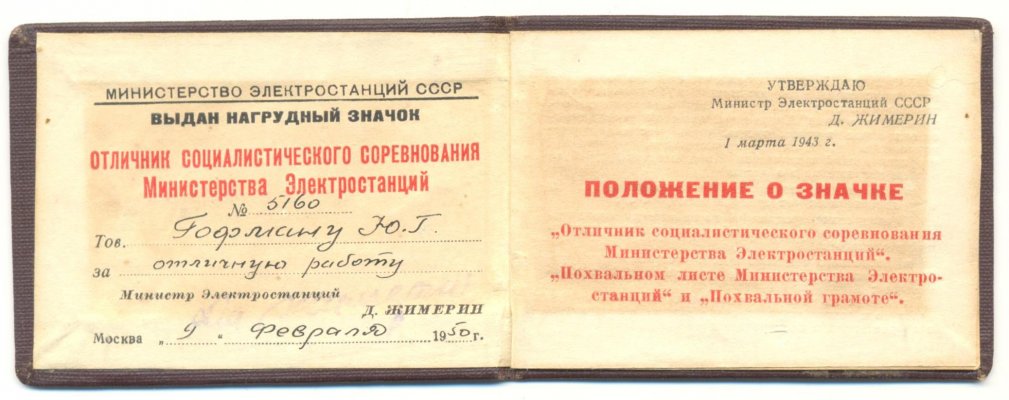 МИНИСТЕРСТВО ЭЛЕКТРОСТАНЦИЙ СССР
ВЫДАН НАГРУДНЫЙ ЗНАЧОК
ОТЛИЧНИК СОЦИАЛИСТИЧЕСКОГО СОРЕВНОВАНИЯ
Министерства Электростанций
№ 5160
Тов. Гофману Ю.Г.
за отличную работу
Министр Электростанций
Д. ЖИМЕРИН
Москва „9" февраля 1950 г.
УТВЕРЖДАЮ
Министр Электростанций СССР
Д. ЖИМЕРИН
1 марта 1943 г.
ПОЛОЖЕНИЕ О ЗНАЧКЕ
„Отличник социалистического соревнования
Министерства Электростанций“.
„Похвальном листе Министерства Электро-
станций“ и „Похвальной грамоте“.